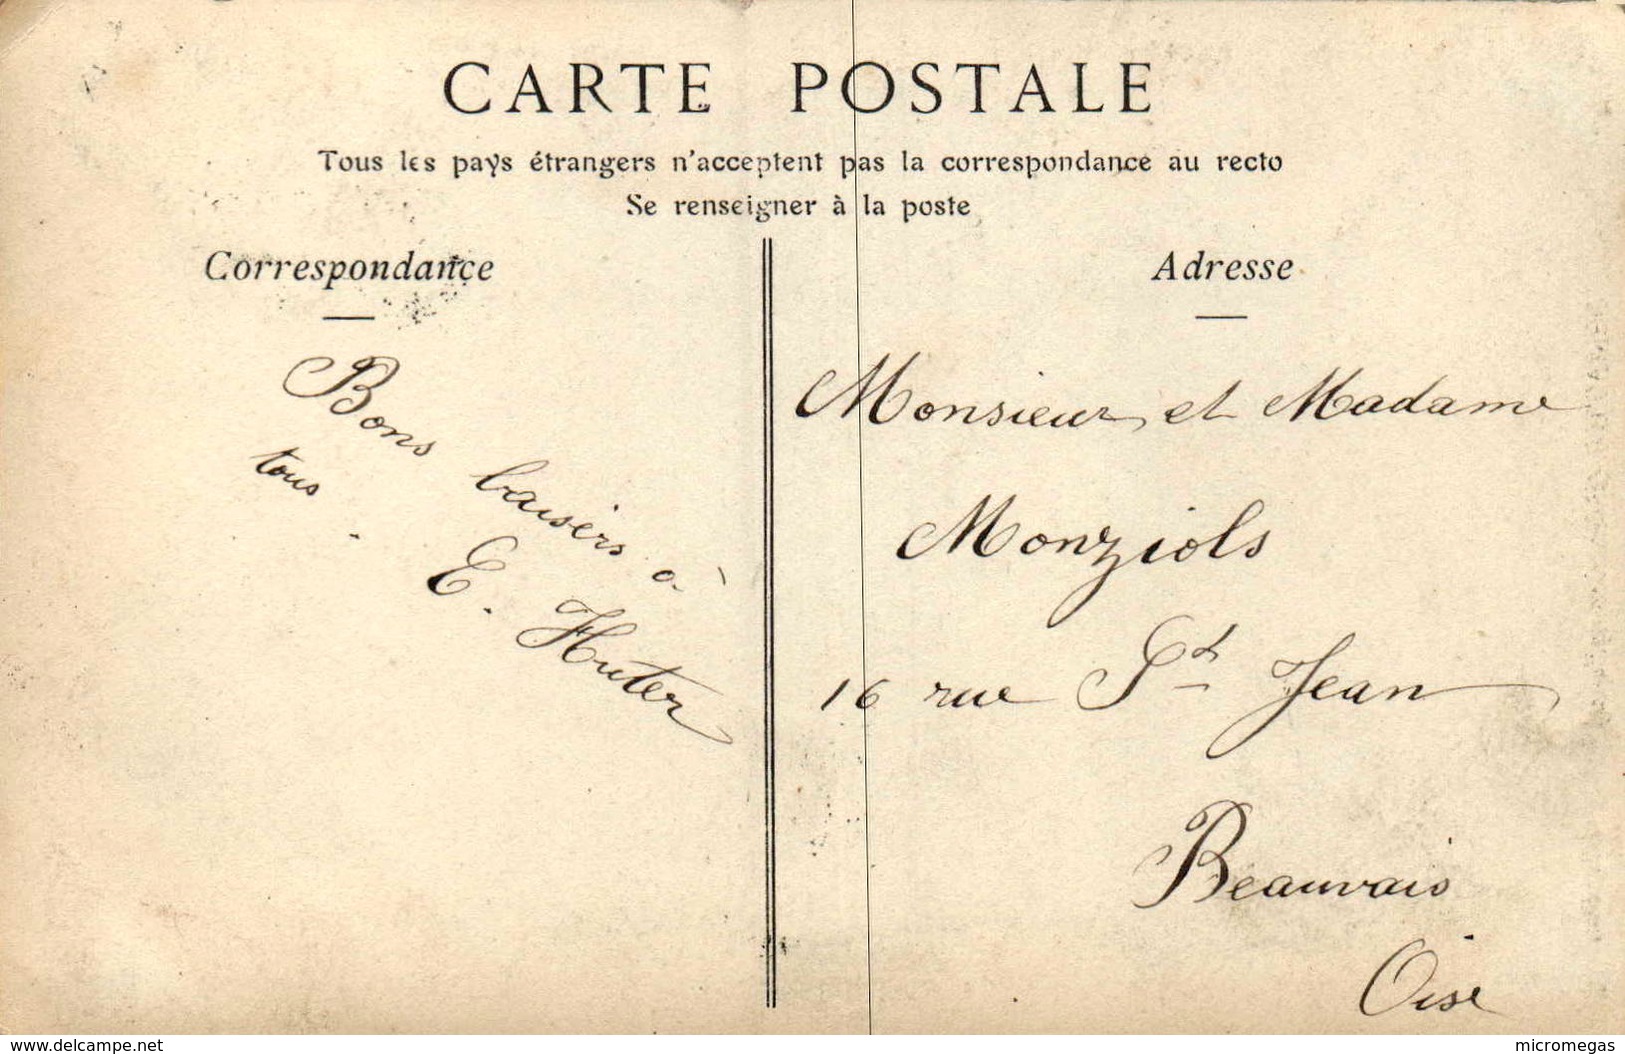 CARTE POSTALE
Tous les pays étrangers n'acceptent pas la correspondance au recto
Se renseigner à la poste
Correspondance
Bons baisers à
tous.
E. Huter
Adresse
Monsieur et Madame
Monziols
16 rue St Jean
Beauvais
Oise
www.delcampe.net
micromegas